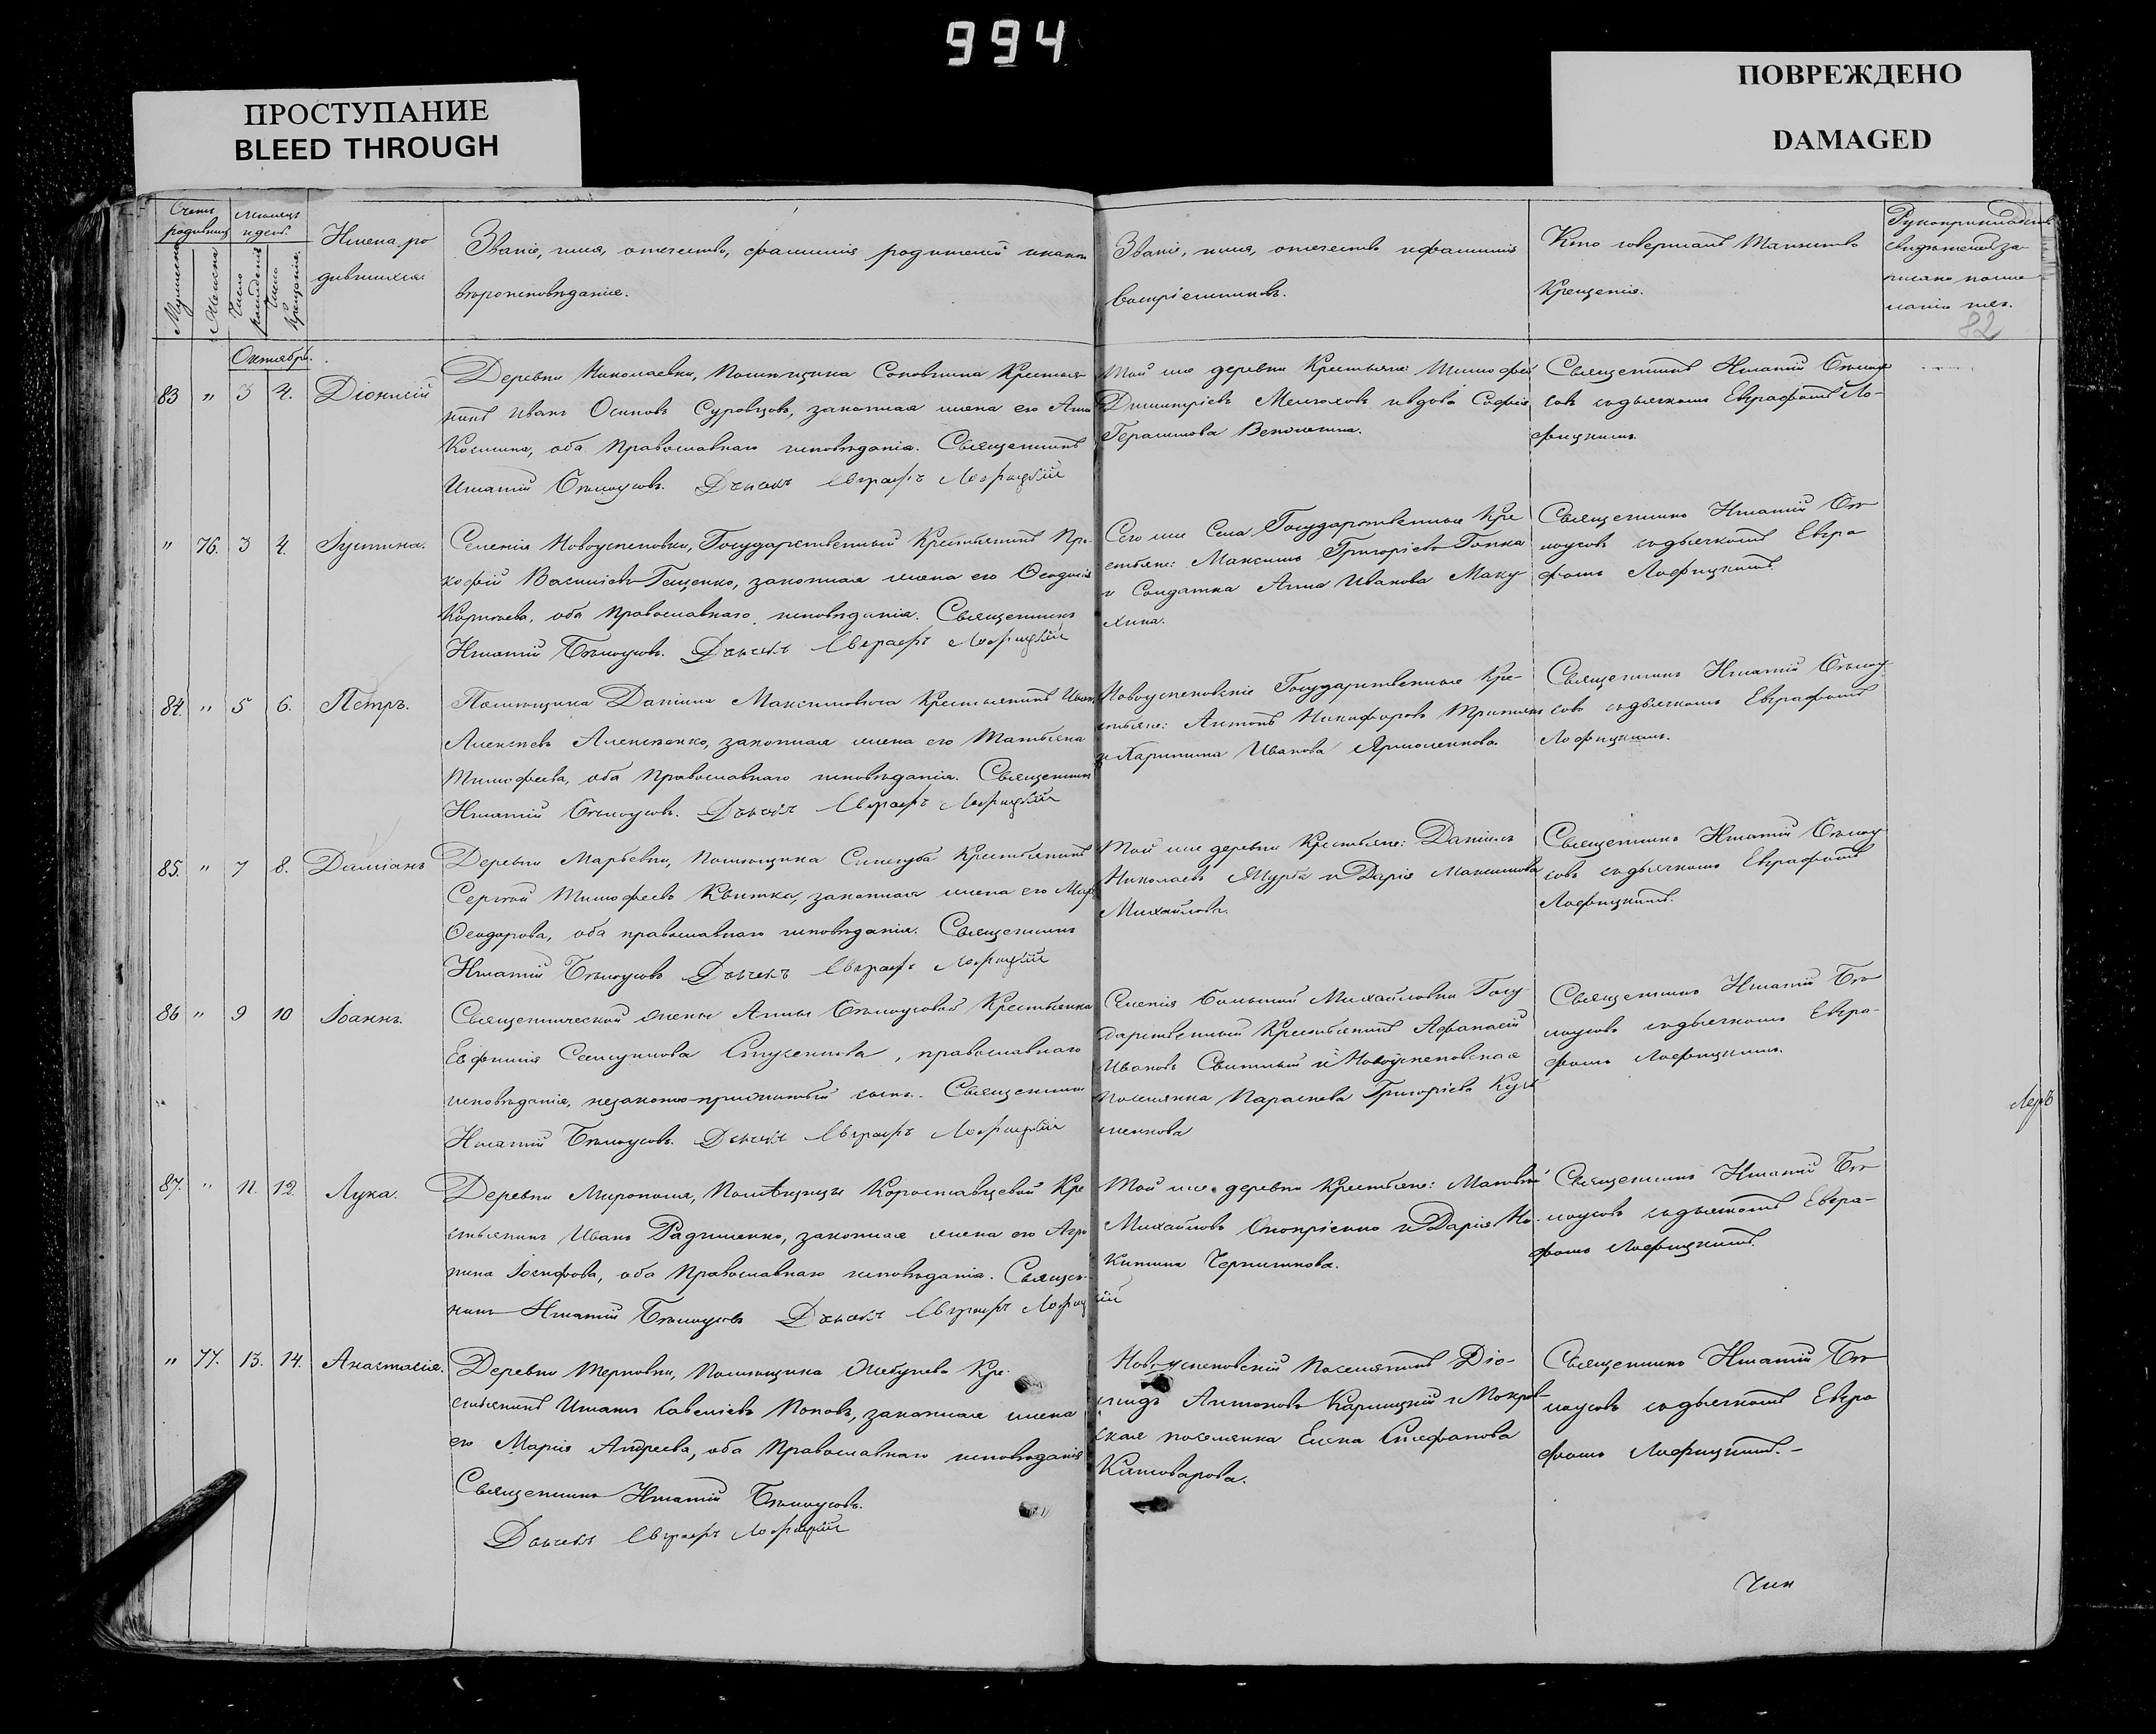 994
ПРОСТУПАНИЕ
BLEED THROUGH
ПОВРЕЖДЕНО
DAMAGED
Счетъ родившихся
Мѣсяцъ и день.
Мужеска
Женска
Число рожденія
Число Крещенія.
Имена ро
дившихся
Званіе, имя, отечество, фамилія родителей и какого
вѣроисповѣданія.
Званіе, имя, отечество и фамилія
воспріемниковъ.
Кто совершалъ Таинство
Крещенія.
82
Октябрь.
83 " 3 4. Діонисій
Деревни Николаевки, Помѣщика Крестья
нинъ Иванъ Осиповъ Суровцовъ, законная жена его Анна
Косьмина, оба Православнаго исповѣданія. Священникъ
Игнатій Бѣлоусовъ. Дьячекъ Евграфъ Лофицкій
Той же деревни Крестьяне: Тимофей
Димитріевъ и вдова Софія
Герасимова
Священникъ Игнатій Бѣлоу
совъ съ дьячкомъ Евграфомъ Ло-
фицкимъ.
" 76. 3 4. Іустина.
Селенія Новоуспеновки, Государственный Крестьянинъ Про
кофій Васильевъ Гаценко, законная жена его Ѳеодосія
Корнѣева, оба Православнаго исповѣданія. Священникъ
Игнатій Бѣлоусовъ. Дьячекъ Евграфъ Лофицкій
Сего же Села Государственные Кре
стьяне: Максимъ Григорьевъ Гонка
и Солдатка Анна Иванова Маку
хина.
Священникъ Игнатій Бѣ
лоусовъ съ дьячкомъ Евгра
фомъ Лофицкимъ.
84. " 5 6. Петръ.
Помѣщика Даніила Максимовича Крестьянинъ Иванъ
Алексѣевъ Алексѣенко, законная жена его Татьяна
Тимофеева, оба Православнаго исповѣданія. Священникъ
Игнатій Бѣлоусовъ. Дьячекъ Евграфъ Лофицкій
Новоуспеновскіе Государственные Кре-
стьяне: Антонъ Никифоровъ
и Харитина Иванова Ярмоленкова.
Священникъ Игнатій Бѣлоу
совъ съ дьячкомъ Евграфомъ
Лофицкимъ.
85. " 7 8. Даміанъ
Деревни Марьевки, Помѣщика Синегуба Крестьянинъ
Сергѣй Тимофеевъ Квитка, законная жена его
Ѳеодорова, оба православнаго исповѣданія. Священникъ
Игнатій Бѣлоусовъ Дьячекъ Евграфъ Лофицкій
Той же деревни Крестьяне: Даніилъ
Николаевъ Мурга и Дарія Максимова
Михайлова.
Священникъ Игнатій Бѣлоу
совъ съ дьячкомъ Евграфомъ
Лофицкимъ.
86 " 9 10 Іоаннъ.
Священнической жены Анны Бѣлоусовой Крестьянка
Евфимія Самуилова , православнаго
исповѣданія, незаконно-прижитый сынъ. Священникъ
Игнатій Бѣлоусовъ. Дьячекъ Евграфъ Лофицкій
Селенія Большой Михайловки Госу
дарственный Крестьянинъ Афанасій
Ивановъ и Новоуспеновская
поселянка Параскева Григорьева
менкова
Священникъ Игнатій Бѣ
лоусовъ съ дьячкомъ Евгра-
фомъ Лофицкимъ.
87. " 11. 12. Лука.
Деревни Мирополя, Помѣщицы Коростовцевой Кре
стьянинъ Иванъ Радченко, законная жена его Агри
пина Іосифова, оба Православнаго исповѣданія. Священ
никъ Игнатій Бѣлоусовъ Дьячекъ Евграфъ Лофицкій
Той же деревни Крестьяне: Матвѣй
Михайловъ Онопріенко и Дарія Но-
китина Чернышкова.
Священникъ Игнатій Бѣ
лоусовъ съ дьячкомъ Евгра-
фомъ Лофицкимъ.
" 77. 13. 14. Анастасія.
Деревни Терновки, Помѣщика Кре
стьянинъ Савельевъ Поповъ, законная жена
его Марія Андреева, оба Православнаго исповѣданія
Священникъ Игнатій Бѣлоусовъ.
Дьячекъ Евграфъ Лофицкій
Новоуспеновскій Поселянинъ Діо-
мидъ Антоновъ Карницкій и Покров-
ская поселянка Елена Стефанова
Катоварова.
Священникъ Игнатій Бѣ
лоусовъ съ дьячкомъ Евгра
фомъ Лофицкимъ.-